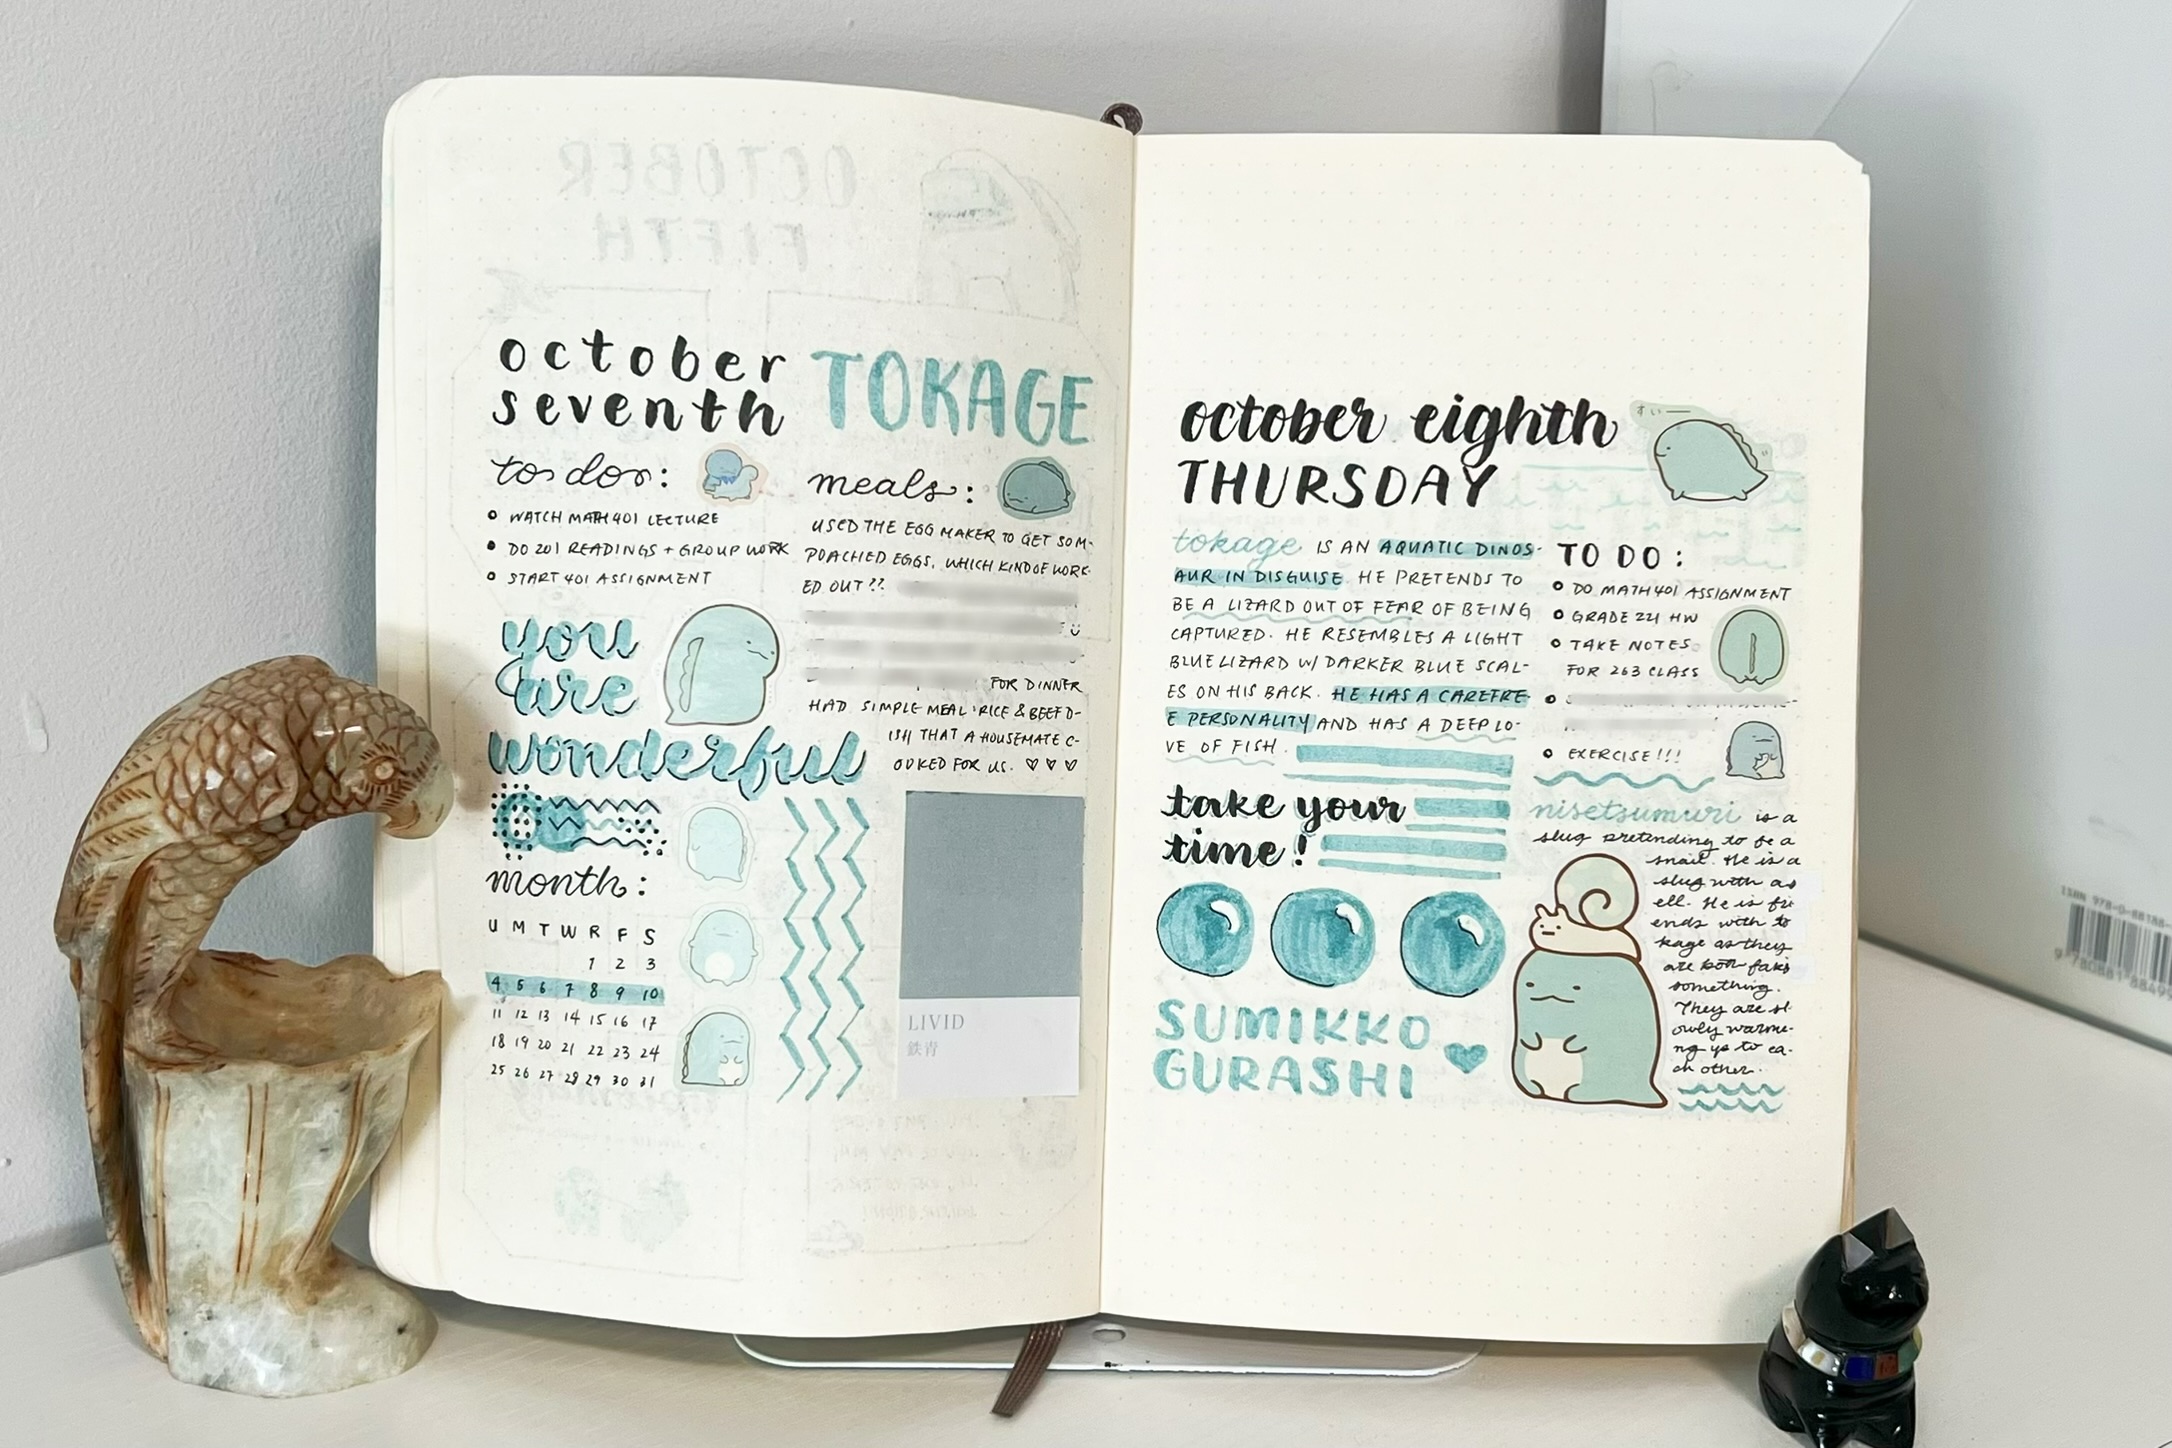 october
seventh
TOKAGE
to dos:
WATCH MATH 401 LECTURE
DO 201 READINGS + GROUP WORK
START 401 ASSIGNMENT
meals:
USED THE EGG MAKER TO GET SOM-
POACHED EGGS, WHICH KIND OF WORK-
ED OUT??
FOR DINNER
HAD SIMPLE MEAL: RICE & BEEF D-
ISH THAT A HOUSEMATE C-
OOKED FOR US. ♡ ♡ ♡
you
are
wonderful
month:
U M T W R F S
1 2 3
4 5 6 7 8 9 10
11 12 13 14 15 16 17
18 19 20 21 22 23 24
25 26 27 28 29 30 31
LIVID
鉄青
october eighth
THURSDAY
すぃー
tokage IS AN AQUATIC DINOS-
AUR IN DISGUISE HE PRETENDS TO
BE A LIZARD OUT OF FEAR OF BEING
CAPTURED. HE RESEMBLES A LIGHT
BLUE LIZARD W/ DARKER BLUE SCAL-
ES ON HIS BACK. HE HAS A CAREFRE-
E PERSONALITY AND HAS A DEEP LO-
VE OF FISH.
take your
time!
SUMIKKO
GURASHI
TO DO:
DO MATH 401 ASSIGNMENT
GRADE 221 HW
TAKE NOTES
FOR 263 CLASS
EXERCISE!!!
nisetsumuri is a
slug pretending to be a
snail. He is a
slug with a s
ell. He is fri
ends with to
kage as they
are both faki
something.
They are sl
owly warmi-
ng up to ea-
ch other.
OCTOBER
FIFTH
ISBN 978-0-88188-